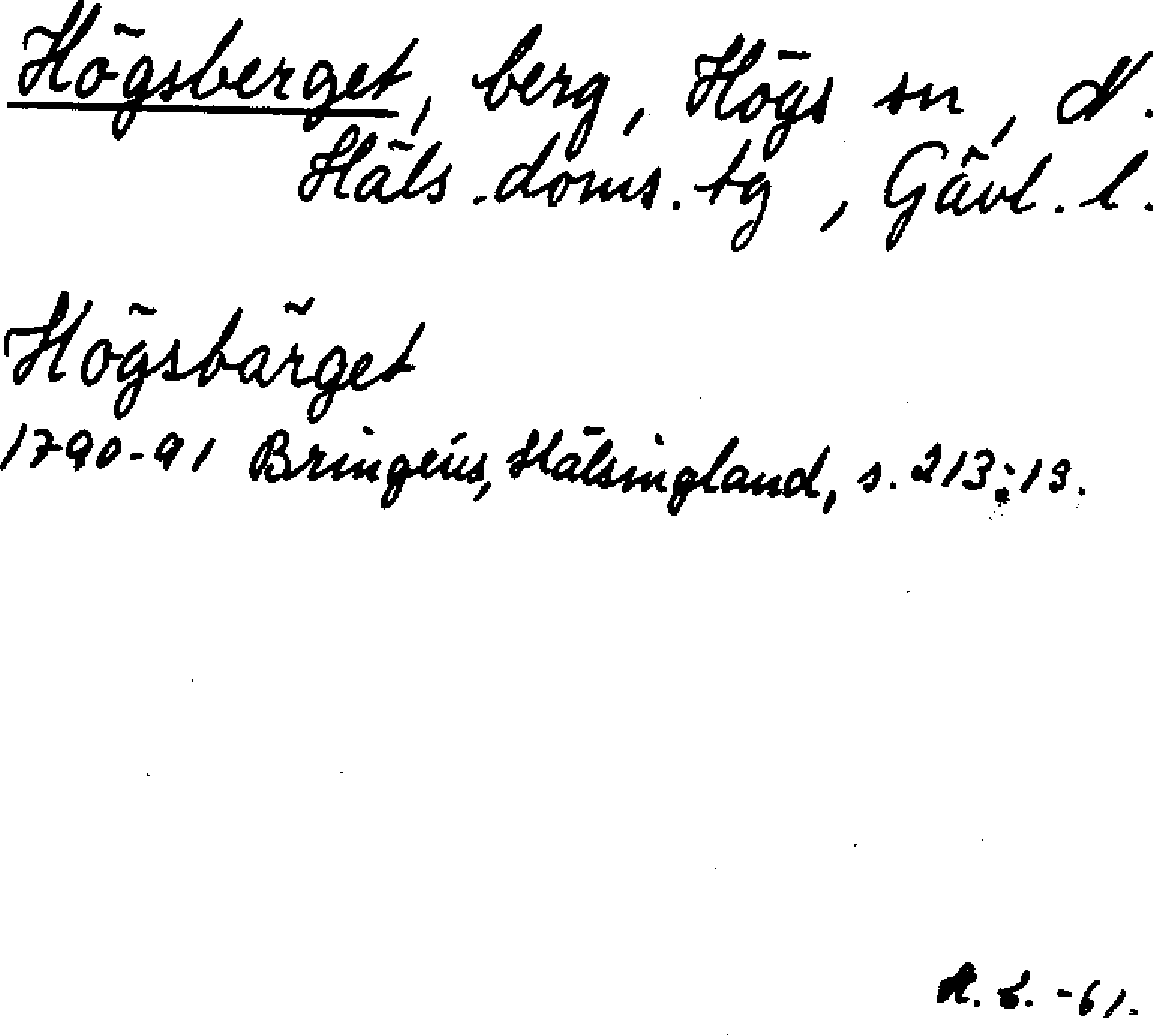 Högsberget, berg, Högs sn, N.
Häls. doms. tg, Gävl. l.
Högsbärget
1790-91 Bringéus, Hälsingland, s. 213:13.
-61.